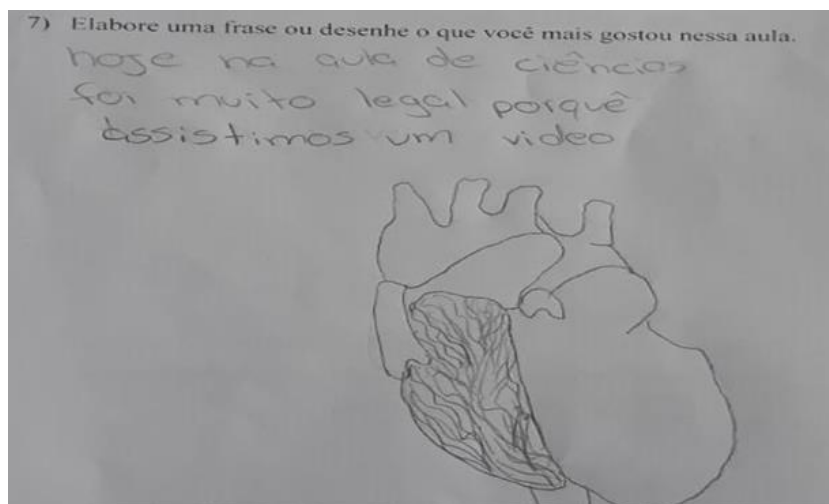 7) Elabore uma frase ou desenhe o que você mais gostou nessa aula.
hoje na aula de ciências
foi muito legal porquê
assistimos um video